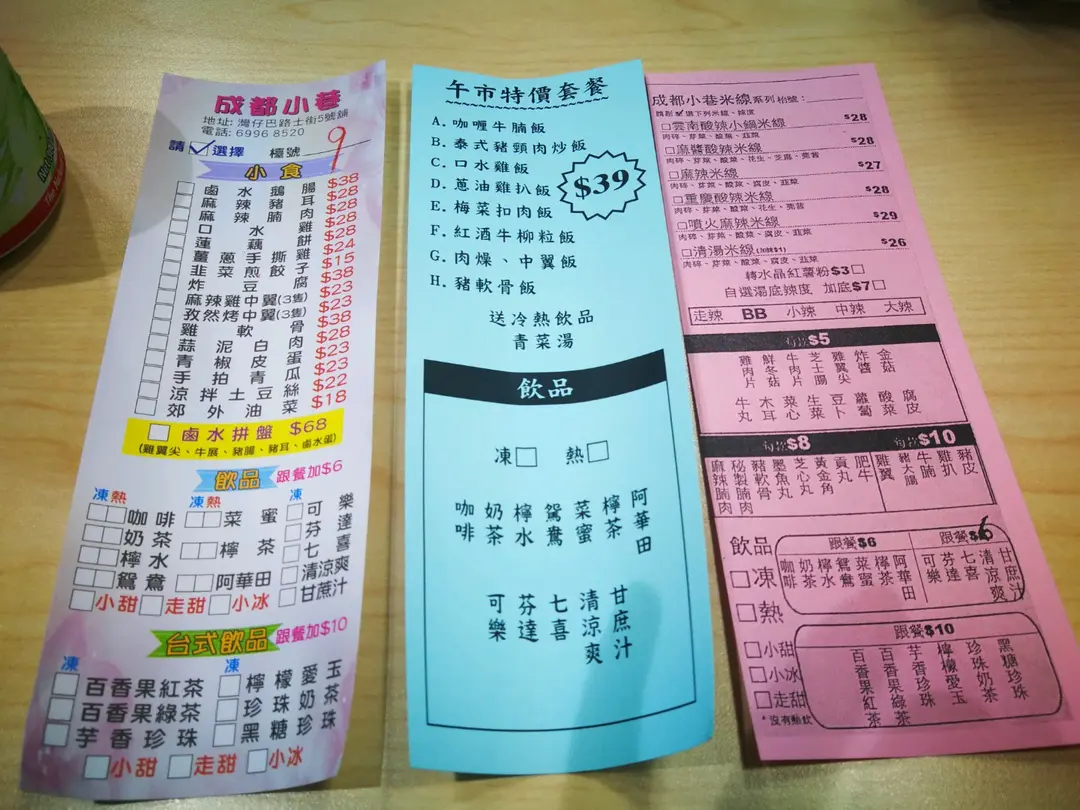 成都小巷
地址: 灣仔巴路士街5號舖
電話: 6996 8520
請 選擇 檯號 9
小食
鹵水鵝腸 $38
麻辣豬耳 $28
麻辣腩肉 $28
口水雞 $28
蓮藕餅 $24
薑蔥手撕雞 $28
韭菜煎餃子 $24
炸豆腐 $15
麻辣雞中翼(3隻) $23
孜然烤中翼(3隻) $23
雞軟骨 $38
蒜泥白肉 $28
青椒皮蛋 $23
手拍青瓜 $23
涼拌土豆絲 $22
郊外油菜 $18
鹵水拼盤 $68
(雞翼尖、牛展、豬腸、豬耳、鹵水蛋)
飲品 跟餐加$6
凍熱 凍熱 凍
咖啡 菜蜜 可樂
奶茶 芬達
檸水 檸茶 七喜
鴛鴦 阿華田 清涼爽
甘蔗汁
小甜 走甜 小冰
台式飲品 跟餐加$10
凍 凍
百香果紅茶 檸檬愛玉
百香果綠茶 珍珠奶茶
芋香珍珠 黑糖珍珠
小甜 走甜 小冰
午市特價套餐
A. 咖喱牛腩飯
B. 泰式豬頸肉炒飯
C. 口水雞飯
D. 蔥油雞扒飯
E. 梅菜扣肉飯
F. 紅酒牛柳粒飯
G. 肉燥、中翼飯
H. 豬軟骨飯
$39
送冷熱飲品
青菜湯
飲品
凍 熱
咖啡 奶茶 檸水 鴛鴦 菜蜜 檸茶 阿華田
可樂 芬達 七喜 清涼爽 甘庶汁
成都小巷米線系列 枱號:
請剔 選下列米線、辣度
雲南酸辣小鍋米線 $28
肉碎、芽菜、酸菜、韭菜
麻醬酸辣米線 $28
肉碎、芽菜、酸菜、花生、芝麻、蕉醬
麻辣米線 $27
肉碎、芽菜、酸菜、腐皮、韭菜
重慶酸辣米線 $28
肉碎、芽菜、酸菜、花生、
噴火麻辣米線 $29
肉碎、芽菜、酸菜、腐皮、韭菜
清湯米線 $26
肉碎、芽菜、酸菜、腐皮、韭菜
轉水晶紅薯粉$3
自選湯底辣度 加底$7
走辣 BB 小辣 中辣 大辣
每款$5
雞肉片 鮮冬菇 牛肉片 芝士腸 雞翼尖 炸醬 金菇
牛丸 木耳 菜心 生菜 豆卜 蘿蔔 酸菜 腐皮
每款$8 每款$10
麻辣腩肉 秘製腩肉 豬軟骨 墨魚丸 芝心丸 黃金角 貢丸 肥牛 雞翼 豬大腸 牛腩 雞扒 豬皮
飲品
凍
熱
小甜
小冰
走甜
*沒有熱飲
跟餐$6
咖啡 奶茶 檸水 鴛鴦 菜蜜 檸茶 阿華田
跟餐$6
可樂 芬達 七喜 清涼爽 甘庶汁
跟餐$10
百香果紅茶 百香果綠茶 芋香珍珠 檸檬愛玉 珍珠奶茶 黑糖珍珠